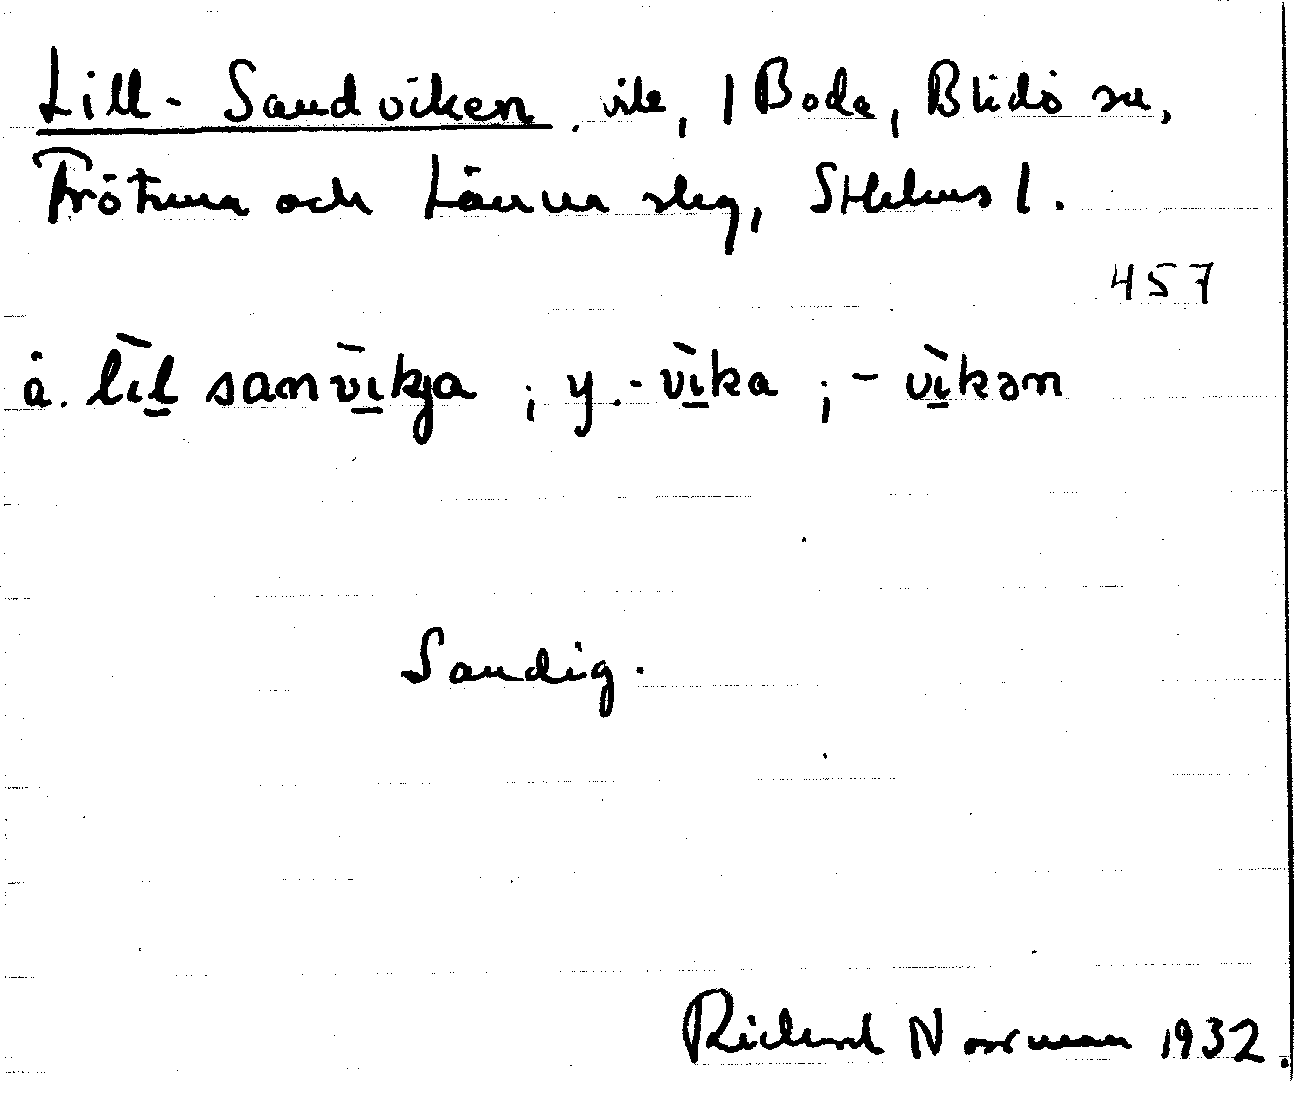 Lill-Sandviken, vik, 1 Boda, Blidö sn,
Frötuna och Länna slg, Sthlms l.
457
ä. lìl sanvìkja ; y. -vìka ; -vìkən
Sandig.
Richard Norrman 1932.